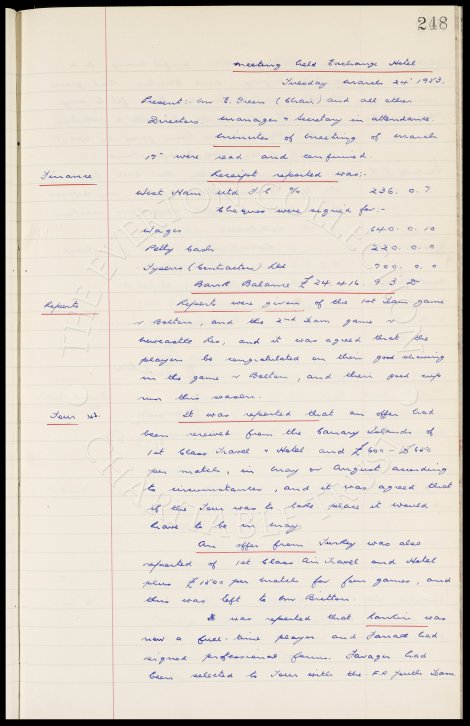 248
Meeting held Exchange Hotel
Tuesday March 24th 1953.
Present:- Mr E. Green (Chair) and all other
Directors. Manager & Secretary in attendance.
Minutes of meeting of March
17th were read and confirmed.
Finance Receipt reported was:-
West Ham Utd F C % 236. 0. 7
Cheques were signed for:-
Wages 640. 0. 10
Petty Cash 220. 0. 0
Tysons (Contractors) Ltd 700. 0. 0
Bank Balance £24,416. 9. 3 Dr
Reports Reports were given of the 1st Team game
v Bolton, and the 2nd Team game v
Newcastle Res, and it was agreed that the
players be congratulated on their good showing
in the game v Bolton, and their good cup
run this season.
Tour It was reported that an offer had
been received from the Canary Islands of
1st Class Travel & Hotel and £600 - £650
per match, in May or August according
to circumstances, and it was agreed that
if the Tour was to take place it would
have to be in May.
An offer from Turkey was also
reported of 1st Class Air Travel and Hotel
plus £1500 per match for four games, and
this was left to Mr Britton.
It was reported that Rankin was
now a full-time player and Farrall had
signed professional forms. Tavager had
been selected to Tour with the F.A Youth Team.
THE EVERTON COLLECTION
CHARITABLE TRUST